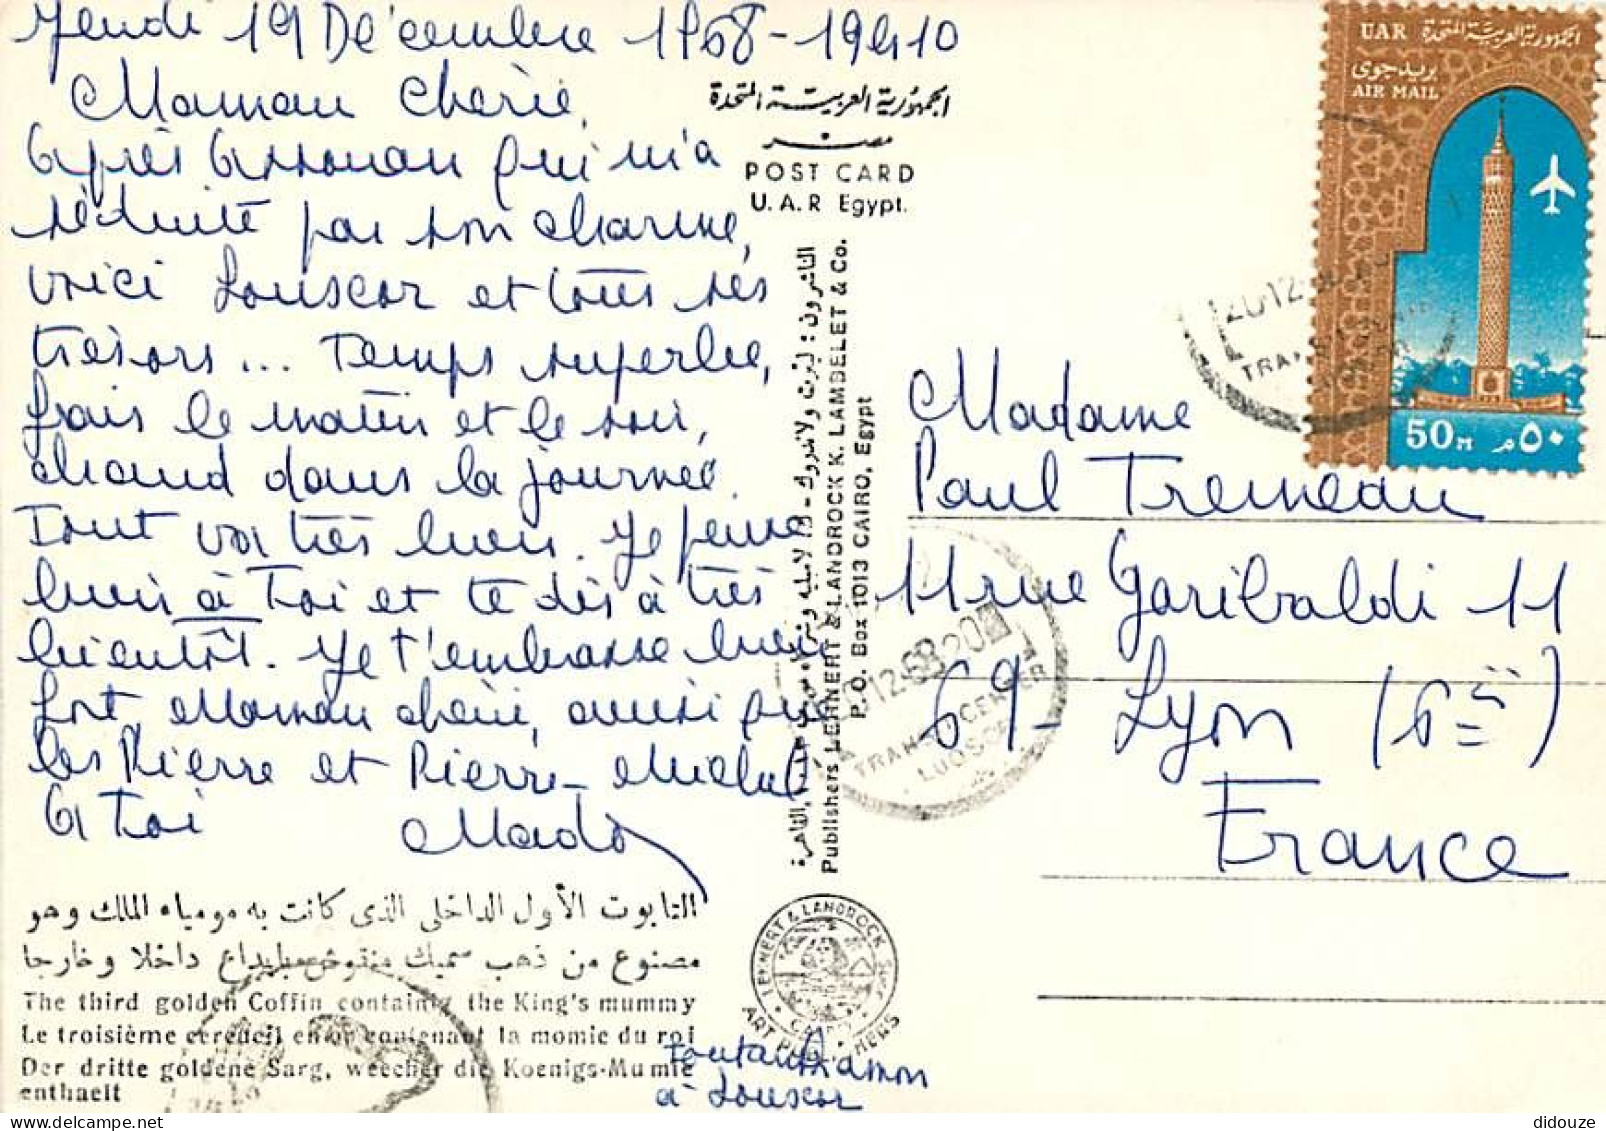 Jeudi 19 Décembre 1968 - 19h10
Maman Chérie,
Après Assouan qui m'a
séduite par son charme,
voici Louxor et tous ses
trésors... Temps superbe,
frais le matin et le soir,
chaud dans la journée.
Tout va très bien. Je pense
bien à Toi et te dis à très
bientôt. Je t'embrasse bien
fort, Maman chérie, ainsi que
les Pierre et Pierre-Michel
A toi Mado
التابوت الأول الداخلى الذى كانت به مومياء الملك وهو
مصنوع من ذهب سميك منقوش بإبداع داخلا وخارجا
The third golden Coffin containing the King's mummy
Le troisième cercueil en or contenant la momie du roi
Der dritte goldene Sarg, weecher die Koenigs-Mumie
enthaelt
الجمهورية العربية المتحدة
مصر
POST CARD
U.A.R Egypt.
الناشرون : لينرت ولاندروك
Publishers LEHNERT & LANDROCK K. LAMBELET & Co.
P.O. Box 1013 CAIRO, Egypt
LEHNERT & LANDROCK SUCC.
CAIRO
ART PUBLISHERS
Toutankhamon
à Louxor
UAR الجمهورية العربية المتحدة
بريد جوى
AIR MAIL
50 M ٥٠ م
20.12
TRANS
12.68.20
TRANS CENTER
LUQSOR
Madame
Paul Tremeau
11 rue Garibaldi 11
69 - Lyon (6è)
France
didouze